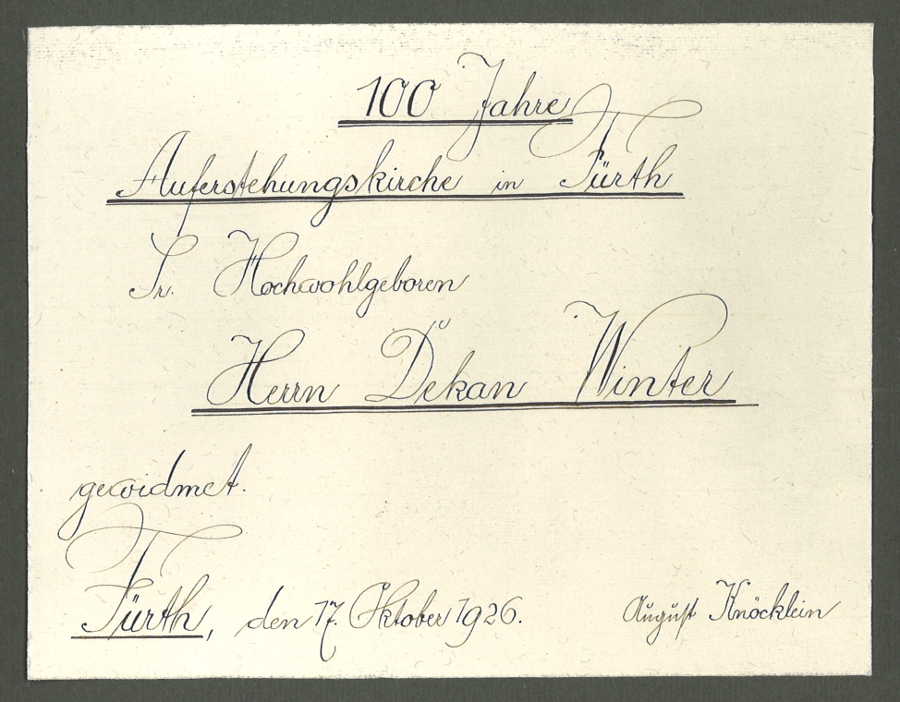 100 Jahre
Auferstehungskirche in Fürth
Sr. Hochwohlgeboren
Herrn Dekan Winter
gewidmet.
Fürth, den 17. Oktober 1926. August Knöcklein